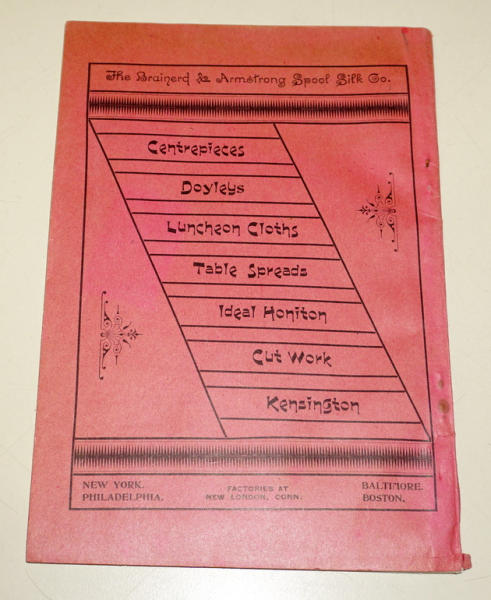 The Brainerd & Armstrong Spool Silk Co.
Centrepieces
Doyleys
Luncheon Cloths
Table Spreads
Ideal Honiton
Cut Work
Kensington
NEW YORK.
PHILADELPHIA.
FACTORIES AT
NEW LONDON, CONN.
BALTIMORE.
BOSTON.